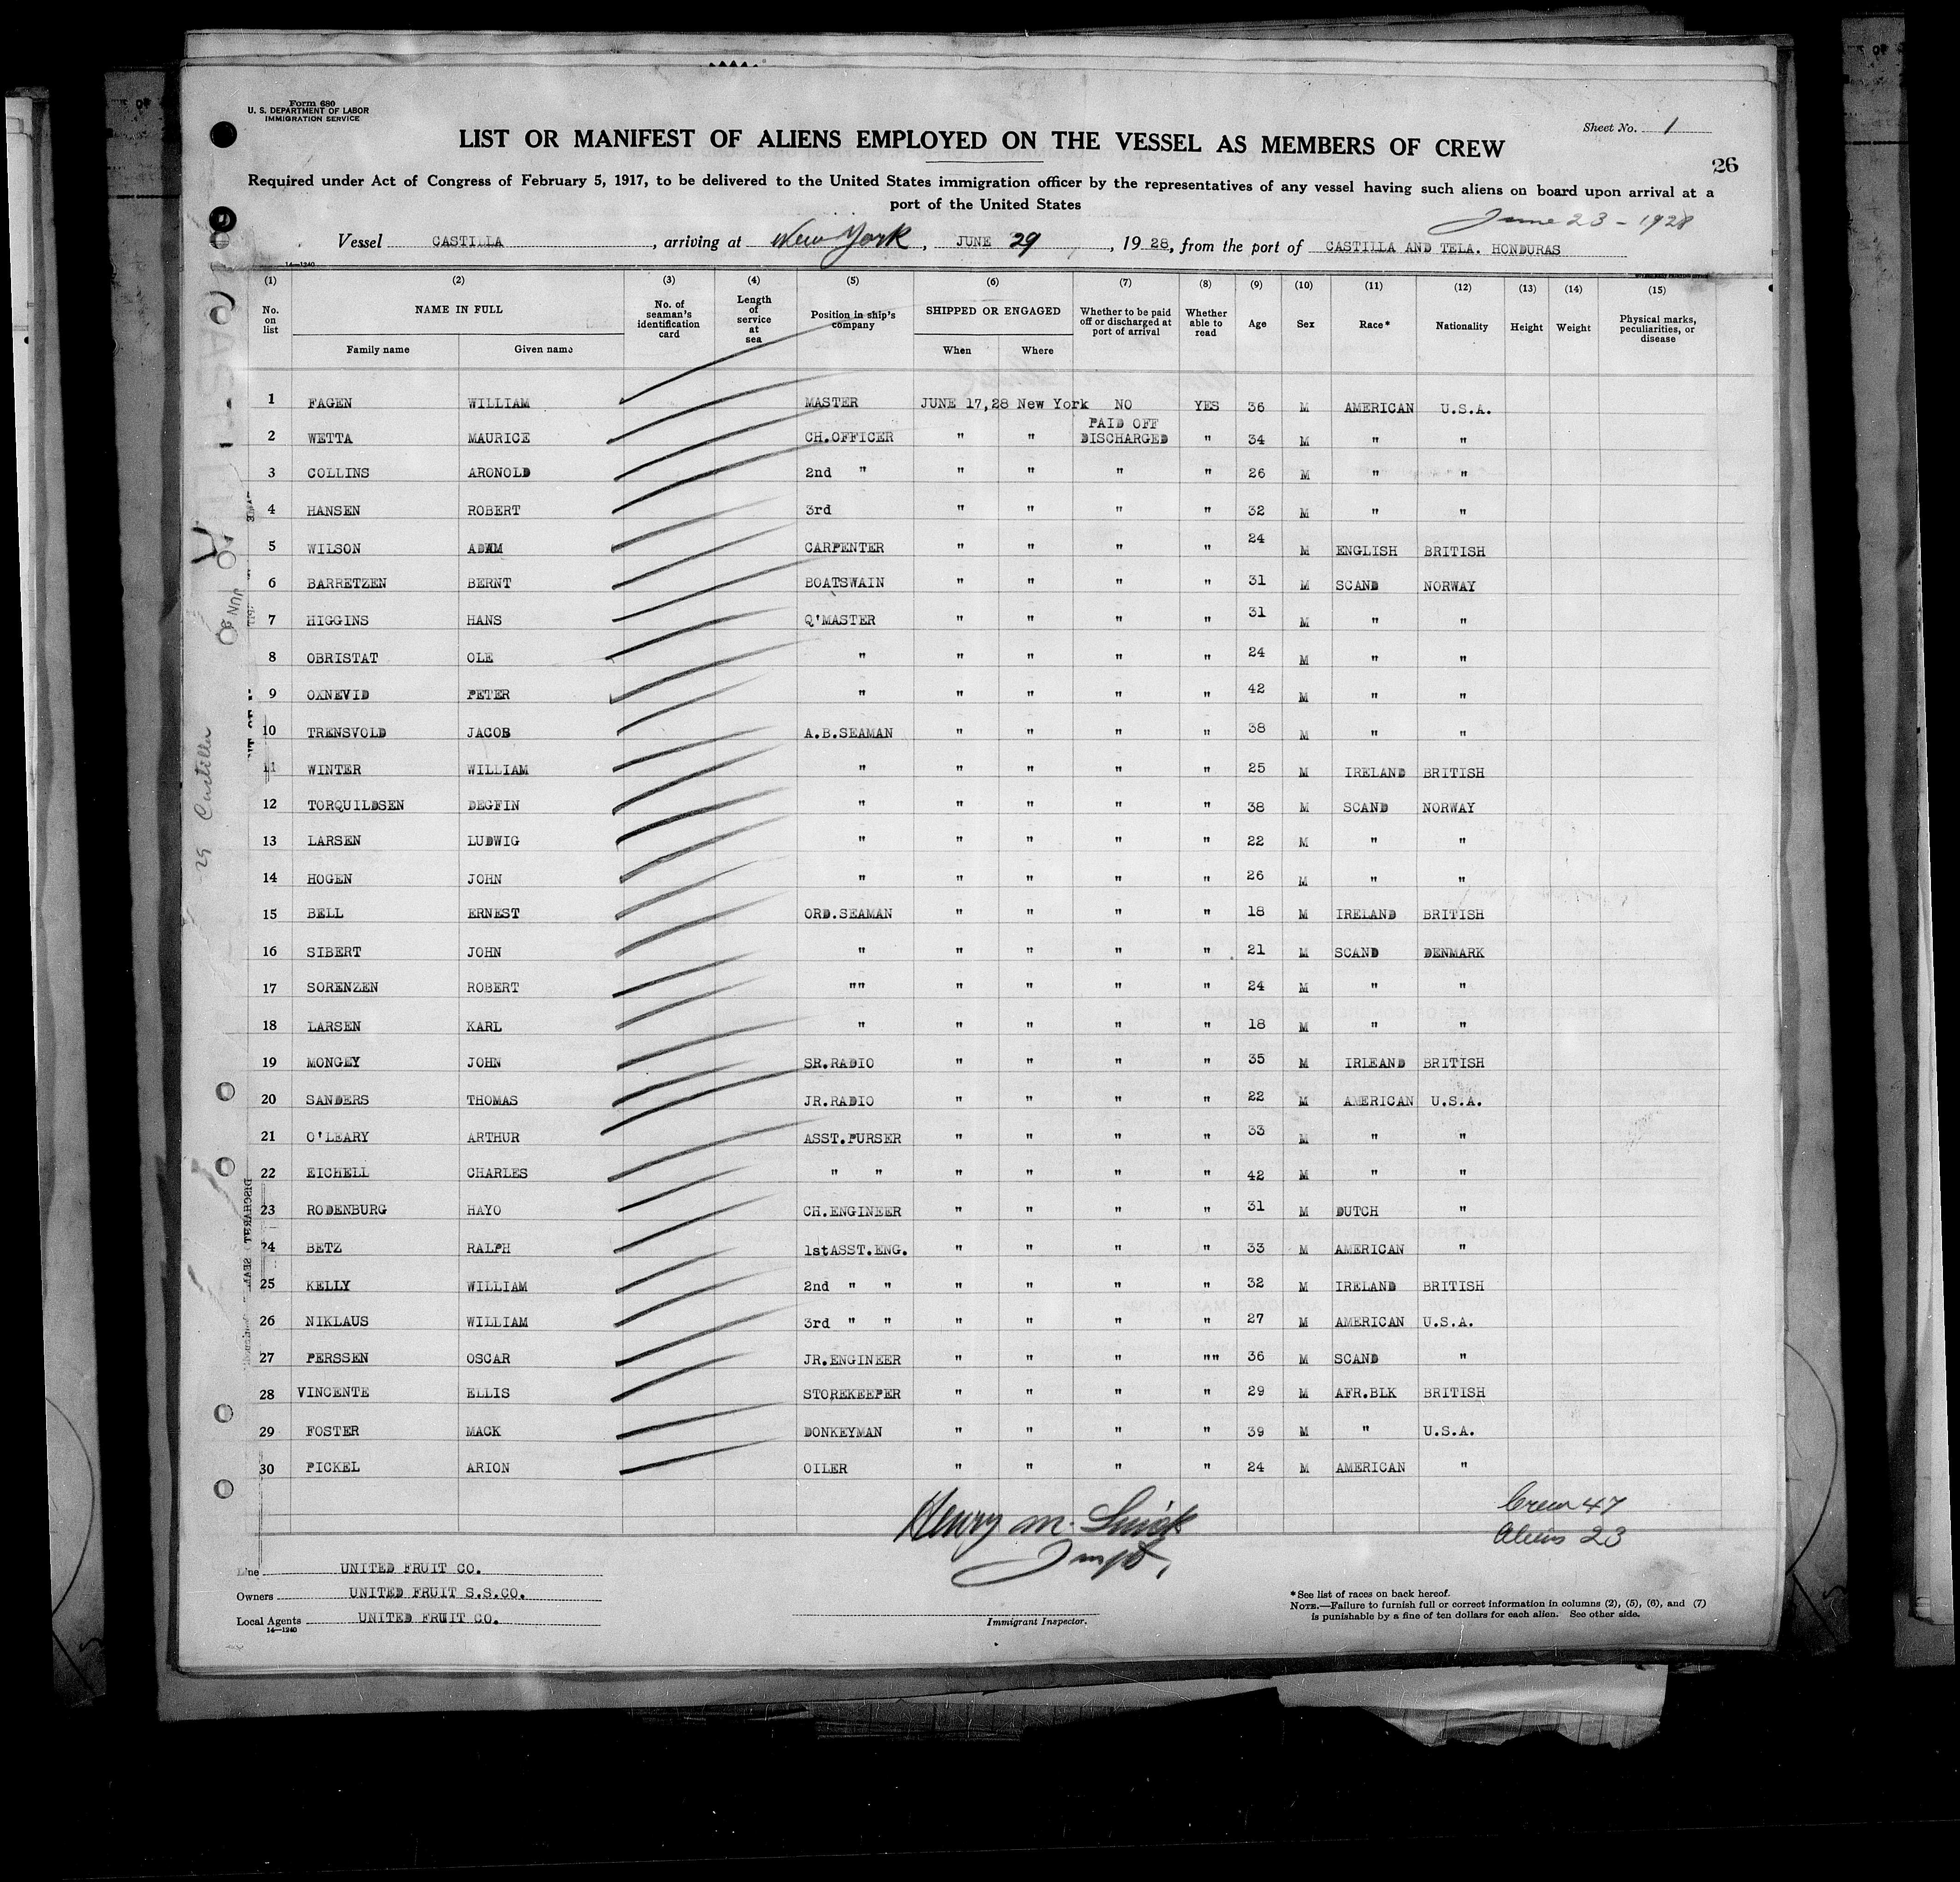 Form 680
U. S. DEPARTMENT OF LABOR
IMMIGRATION SERVICE
Sheet No. 1
LIST OR MANIFEST OF ALIENS EMPLOYED ON THE VESSEL AS MEMBERS OF CREW
26
Required under Act of Congress of February 5, 1917, to be delivered to the United States immigration officer by the representatives of any vessel having such aliens on board upon arrival at a
port of the United States
June 23 - 1928
Vessel CASTILLA, arriving at New York, JUNE 29, 1928, from the port of CASTILLA AND TELA. HONDURAS
14—1240
(1) (2) (3) (4) (5) (6) (7) (8) (9) (10) (11) (12) (13) (14) (15)
No. on list NAME IN FULL Family name Given name No. of seaman's identification card Length of service at sea Position in ship's company SHIPPED OR ENGAGED When Where Whether to be paid off or discharged at port of arrival Whether able to read Age Sex Race* Nationality Height Weight Physical marks, peculiarities, or disease
1 FAGEN WILLIAM MASTER JUNE 17,28 New York NO YES 36 M AMERICAN U.S.A.
2 WETTA MAURICE CH.OFFICER " " PAID OFF DISCHARGED " 34 M " "
3 COLLINS ARONOLD 2nd " " " " " 26 M " "
4 HANSEN ROBERT 3rd " " " " 32 M " "
5 WILSON ADAM CARPENTER " " " " 24 M ENGLISH BRITISH
6 BARRETZEN BERNT BOATSWAIN " " " " 31 M SCAND NORWAY
7 HIGGINS HANS Q'MASTER " " " " 31 M " "
8 OBRISTAT OLE " " " " " 24 M " "
9 OXNEVID PETER " " " " " 42 M " "
10 TRENSVOLD JACOB A.B.SEAMAN " " " " 38 M " "
11 WINTER WILLIAM " " " " " 25 M IRELAND BRITISH
12 TORQUILDSEN DEGFIN " " " " " 38 M SCAND NORWAY
13 LARSEN LUDWIG " " " " " 22 M " "
14 HOGEN JOHN " " " " " 26 M " "
15 BELL ERNEST ORD.SEAMAN " " " " 18 M IRELAND BRITISH
16 SIBERT JOHN " " " " " 21 M SCAND DENMARK
17 SORENZEN ROBERT "" " " " " 24 M " "
18 LARSEN KARL " " " " " 18 M " "
19 MONGEY JOHN SR.RADIO " " " " 35 M IRLEAND BRITISH
20 SANDERS THOMAS JR.RADIO " " " " 22 M AMERICAN U.S.A.
21 O'LEARY ARTHUR ASST.PURSER " " " " 33 M " "
22 EICHELL CHARLES " " " " " " 42 M " "
23 RODENBURG HAYO CH.ENGINEER " " " " 31 M DUTCH "
24 BETZ RALPH 1stASST.ENG. " " " " 33 M AMERICAN "
25 KELLY WILLIAM 2nd " " " " " " 32 M IRELAND BRITISH
26 NIKLAUS WILLIAM 3rd " " " " " " 27 M AMERICAN U.S.A.
27 PERSSEN OSCAR JR.ENGINEER " " " "" 36 M SCAND "
28 VINCENTE ELLIS STOREKEEPER " " " " 29 M AFR.BLK BRITISH
29 FOSTER MACK DONKEYMAN " " " " 39 M " U.S.A.
30 PICKEL ARION OILER " " " " 24 M AMERICAN "
Crew 47
Aliens 23
Henry M.
Line UNITED FRUIT CO.
Owners UNITED FRUIT S.S.CO.
Local Agents UNITED FRUIT CO.
14—1240
Immigrant Inspector.
*See list of races on back hereof.
NOTE.—Failure to furnish full or correct information in columns (2), (5), (6), and (7)
is punishable by a fine of ten dollars for each alien. See other side.
29 Castilla